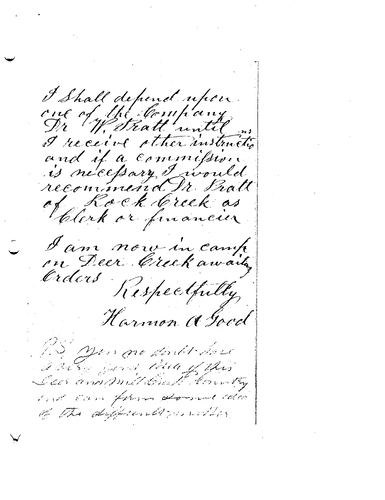 I Shall depend upon
one of the Company
Dr W. Pratt until
I receive other instructions
and if a commission
is necessary I would
recommend Dr. Pratt
of Rock Creek as
Clerk or financier
I am now in camp
on Deer Creek awaiting
Orders
Respectfully
Harmon A Good
PS You no doubt have
a very good idea of this
Deer and Mill Creek Country
and can form some idea
of the different routes